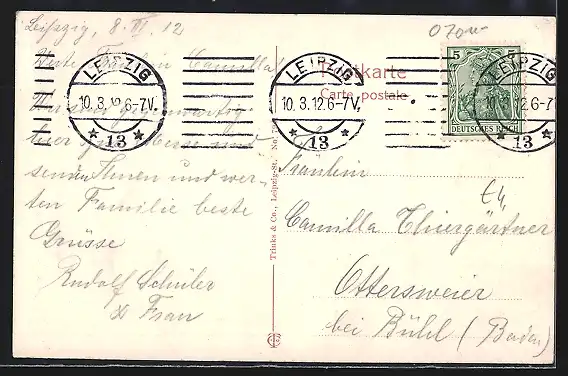 Leipzig, 8. III. 12
Werte Fräulein Camilla!
hier zur Messe sind
senden Ihnen und wer-
ten Familie beste
Grüsse
Rudolf Schüler
& Frau
Trinks & Co., Leipzig-St. No.
Postkarte
Carte postale
LEIPZIG
10.3.12.6-7V.
* 13 *
LEIPZIG
10.3.12.6-7V.
* 13 *
LEIPZIG
10.3.12.6-7V.
* 13 *
5 5
DEUTSCHES REICH
Fräulein
Camilla Thiergärtner
Ottersweier
bei Bühl (Baden)